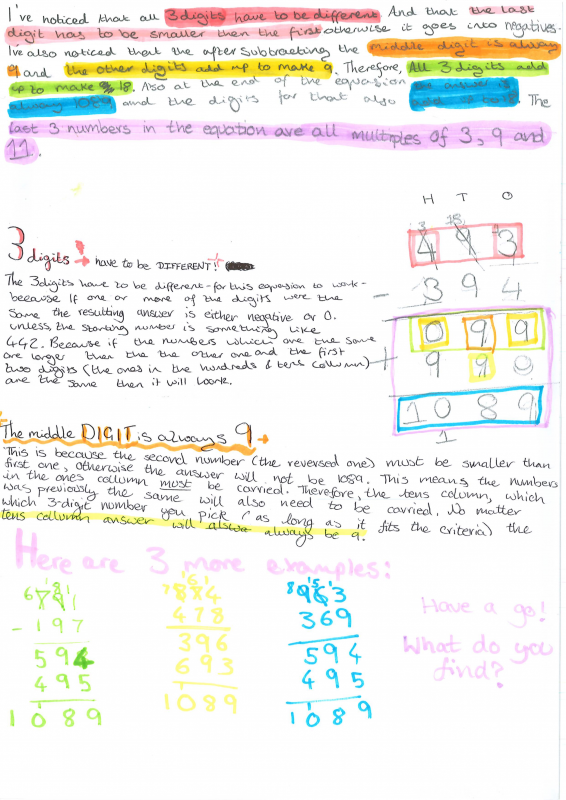 I've noticed that all 3 digits have to be different. And that the last
digit has to be smaller then the first otherwise it goes into negatives.
Ive also noticed that the after subtracting the middle digit is always
9 and the other digits add up to make 9. Therefore, All 3 digits add
up to make 18. Also at the end of the equasion the answer is
always 1089 and the digits for that also add up to 18. The
last 3 numbers in the equation are all multiples of 3, 9 and
11.
H T O
3 18 1
4 9 3
- 3 9 4
0 9 9
+ 9 9 0
1 0 8 9
1
3 digits! → have to be DIFFERENT!!
The 3 digits have to be different for this equasion to work-
because if one or more of the digits were the
same the resulting answer is either negative or 0.
unless, the starting number is something like
442. Because if the numbers which are the same
are larger then the the other one and the first
two digits (the ones in the hundreds & tens collumn)
are the same then it will work.
The middle DIGIT is always 9 →
This is because the second number (the reversed one) must be smaller than
first one, otherwise the answer will not be 1089. This means the numbers
in the ones collumn must be carried. Therefore, the tens column, which
was previously the same will also need to be carried. No matter
which 3-digit number you pick (as long as it fits the criteria) the
tens collumn answer will always be 9.
Here are 3 more examples:
6 7 8 9 1 1
- 1 9 7
5 9 4
4 9 5
1 0 8 9
7 8 16 7 1 4
4 7 8
3 9 6
6 9 3
1 0 8 9
8 9 15 6 1 3
3 6 9
5 9 4
4 9 5
1 0 8 9
Have a go!
What do you
find?